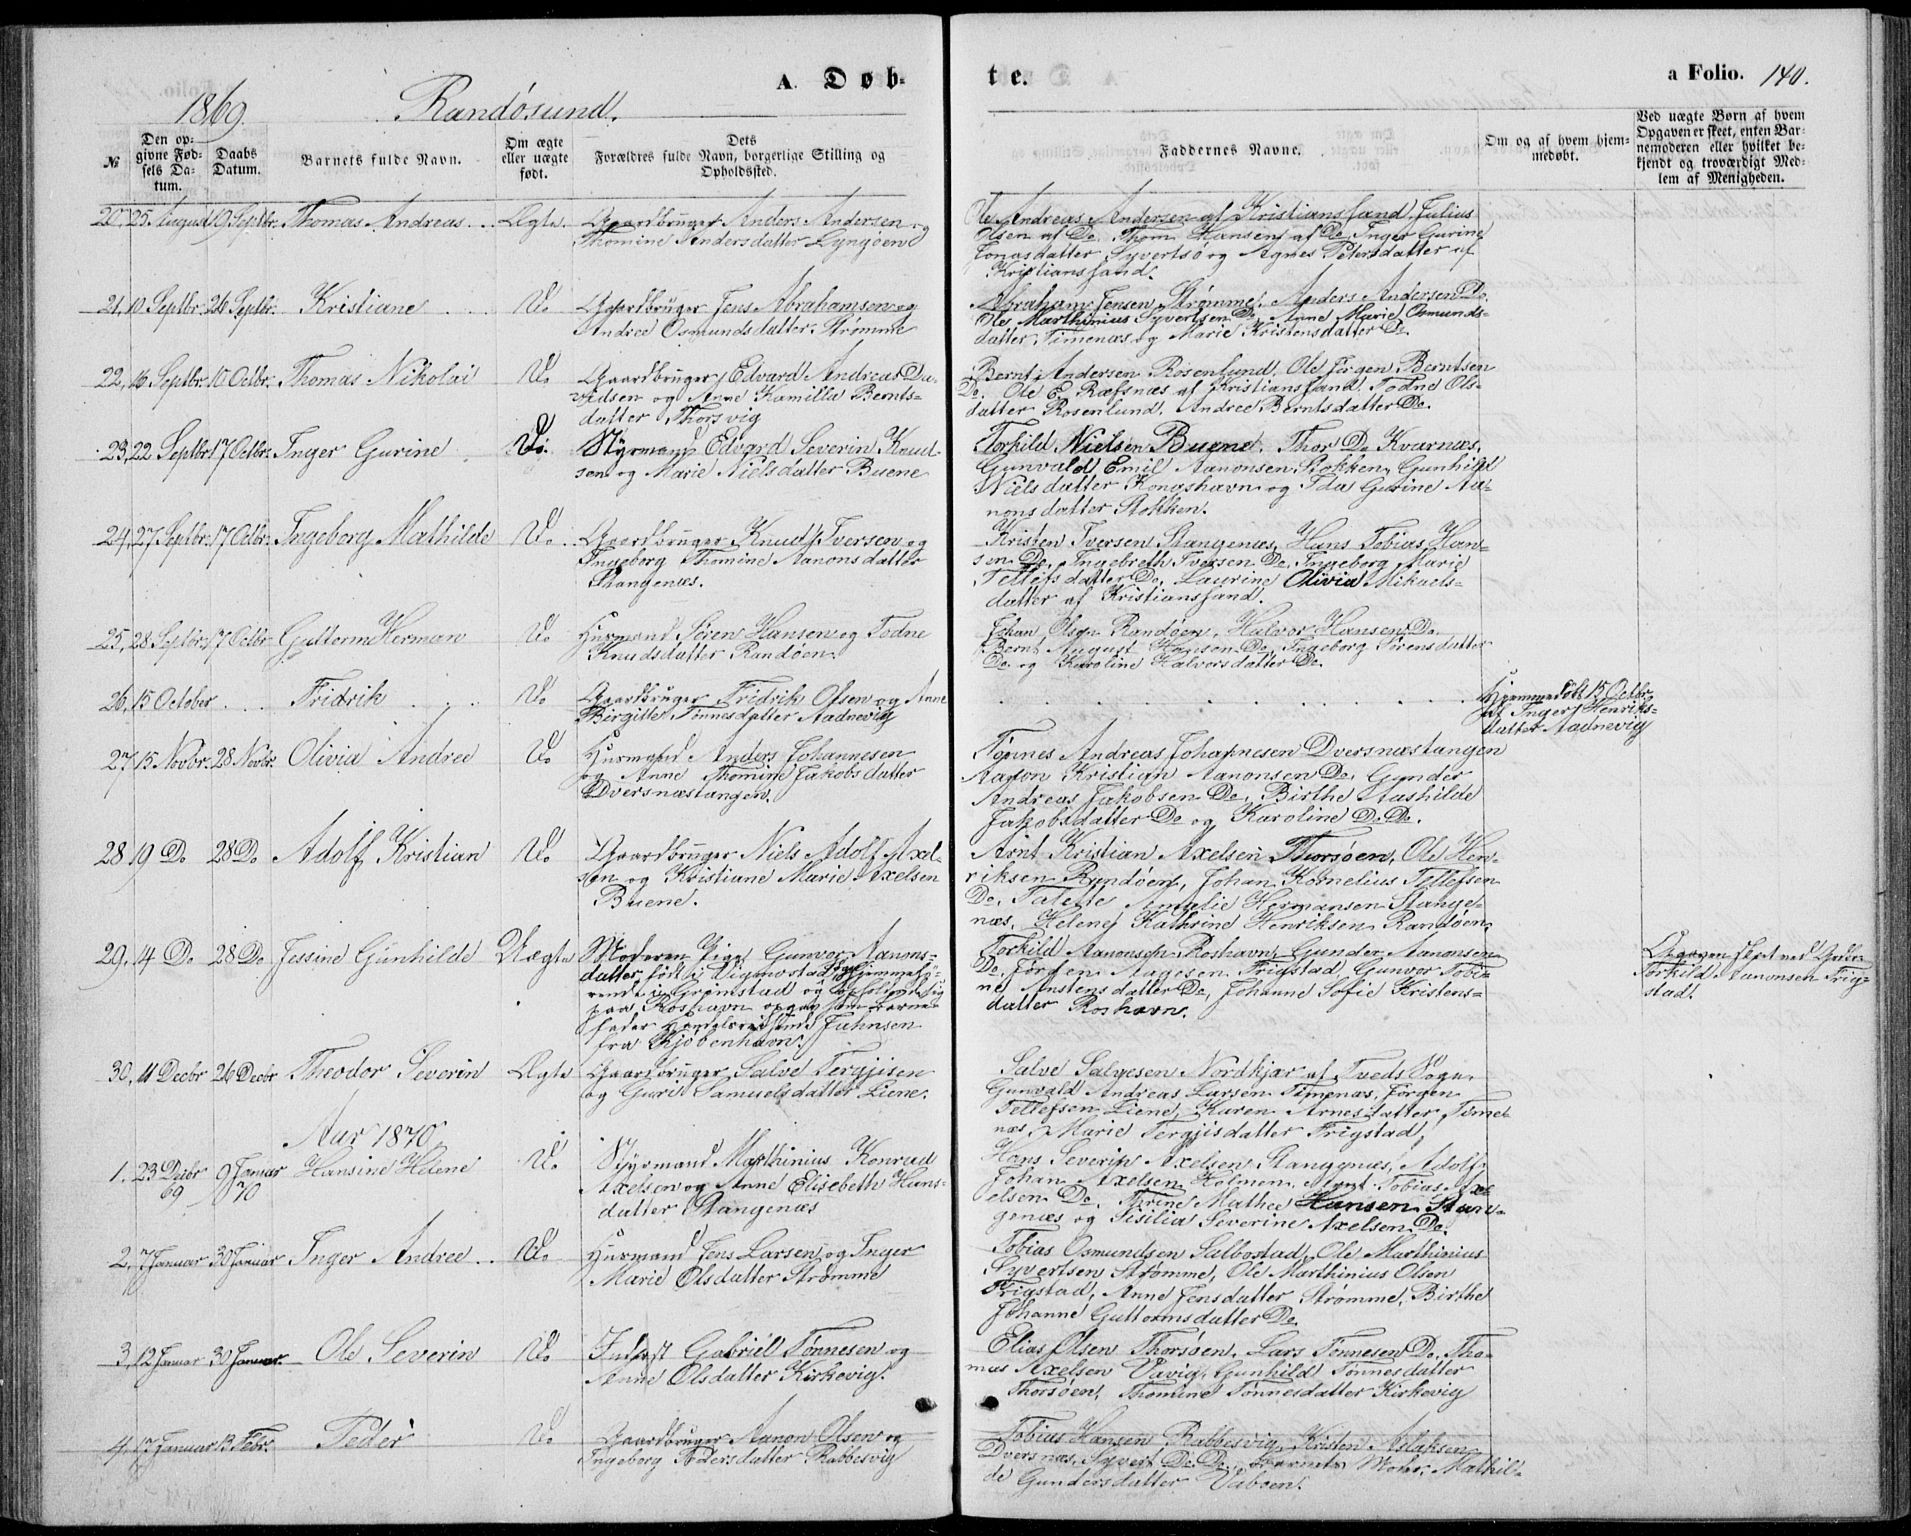 A. Døb-
te.
a Folio. 140.
1869. Randøsund.
№
Den op-
givne Fød-
sels Da-
tum.
Daabs
Datum.
Barnets fulde Navn.
Om ægte
eller uægte
født.
Dets
Forældres fulde Navn, borgerlige Stilling og
Opholdssted.
Faddernes Navne.
Om og af hvem hjem-
medøbt.
Ved uægte Børn af hvem
Opgaven er skeet, enten Bar-
nemoderen eller hvilket be-
kjendt og troværdigt Med-
lem af Menigheden.
20, 25 August 19 Septbr. Thomas Andreas Ægte
Gaardbruger Anders Andersen og
Thomine Andersdatter Lyngøen
Ole Andreas Andersen af Kristianssand, Julius
Olsen af Do. Thom Hansen af Do, Inger Gurine
Jonasdatter Syvertsø og Agnes Petersdatter af
Kristianssand.
21, 10 Septbr. 26 Septbr. Kristiane Do
Gaardbruger Jens Abrahamsen og
Andrea Osmundsdatter Strømme
Abraham Jensen Strømme, Anders Andersen Do.
Ole Marthinius Syvertsen Do, Anne Marie Osmunds-
datter Timenæs og Marie Kristensdatter Do
22, 16 Septbr. 10 Octbr. Thomas Nikolai Do
Gaardbruger Edvard Andreas Da-
vidsen og Anne Kamilla Bernts-
datter Thorsvig
Bernt Andersen Rosenlund, Ole Jørgen Berntsen
Do. Ole E. Ræfsnæs af Kristianssand, Todne Ols-
datter Rosenlund. Andree Berntsdatter Do.
23, 22 Septbr. 17 Octbr. Inger Gurine Do.
Styrmand Edvard Severin Knud-
sen og Marie Nielsdatter Buene
Torkild Nielsen Buene. Thor Do Kvarnæs,
Gunvald Emil Aanonsen Stokken, Gunhild
Nielsdatter Kongshavn og Ida Gurine Aa-
nonsdatter Stokken.
24, 27 Septbr. 17 Octbr. Ingeborg Mathilde Do
Gaardbruger Knud Iversen og
Ingeborg Thomine Aanonsdatter
Stangenæs.
Kristen Iversen Stangenæs, Hans Tobias Han-
sen Do, Ingebreth Iversen Do, Ingeborg Marie
Tellefsdatter Do, Laurine Olivia Mikaels-
datter af Kristianssand.
25, 28 Septbr. 17 Octbr Guttorm Herman Do
Husmand Søren Hansen og Todne
Knudsdatter Randøen.
Johan Olsen Randøen, Halvor Hansen Do.
Bernt August Hansen Do, Ingeborg Sørensdatter
Do og Karoline Halvorsdatter Do.
26, 15 October Fridrik Do
Gaardbruger Fridrik Olsen og Anne
Birgitte Tønnesdatter Aadnevig
Hjemmedøbt 15 Octbr.
af Inger Henriks-
datter Aadnevig
27 15 Novbr. 28 Novbr. Olivia Andree Do
Husmand Anders Johannesen
og Anne Thomine Jakobsdatter
Dversnæstangen.
Tønnes Andreas Johannesen Dversnæstangen
Aanon Kristian Aanonsen Do, Gunder
Andreas Jakobsen Do, Birthe Aashilde
Jakobsdatter Do og Karoline Do. Do.
28 19 Do 28 Do Adolf Kristian Do
Gaardbruger Niels Adolf Axel-
sen og Kristiane Marie Axelsen
Buene.
Arnt Kristian Axelsen Thorsøen, Ole Hen-
riksen Randøen, Johan Kornelius Tellefsen
Do. Amalie Hermansen Stange-
næs, Helene Kathrine Henriksen Randøen,
29, 4 Do 28 Do Jessine Gunhilde Uægte
Moderen Pige Gunvor Aanons-
datter, født i Vigmostad og hjemmehø-
rende i Grimstad og opholdende sig
paa Roshavn opgav som Barne-
fader Handelsreisende Juhnsen
fra Kjøbenhavn.
Torkild Aanonsen Roshavn, Gunder Aanonsen
Do, Jørgen Aagesen Frigstad, Gunvor Tobi-
ne Anstensdatter Do, Johanne Sofie Kristens-
datter Roshavn.
Opgaven skeet ved
Torkild Aanonsen Frig-
stad.
30, 11 Decbr 26 Decbr Theodor Severin Ægte
Gaardbruger Salve Tergjisen
og Guri Samuelsdatter Liene.
Salve Salvesen Nordkjær af Tveds Sogn,
Gunvald Andreas Larsen Timenæs, Jørgen
Tellefsen Liene, Karen Arnesdatter Time-
næs, Marie Tergjisdatter Frigstad,
Aar 1870.
1, 23 Decbr 69 9 Januar 70 Hansine Helene Do
Styrmand Marthinius Konrad
Axelsen og Anne Elisebeth Hans-
datter Stangenæs
Hans Severin Axelsen Stangenæs, Adolf
Johan Axelsen Holmen, Arnt Tobias Ax-
elsen Do. Thrine Mathea Hansen Stan-
genæs og Sisilia Severine Axelsen Do.
2, 7 Januar 30 Januar Inger Andree Do
Husmand Jens Larsen og Inger
Marie Olsdatter Strømme
Tobias Osmundsen Salbostad, Ole Marthinius
Syvertsen Strømme, Ole Marthinius Olsen
Frigstad, Anne Jensdatter Strømme, Birthe
Johanne Guttormsdatter Do.
3, 12 Januar 30 Januar. Ole Severin Do
Inderst Gabriel Tønnesen og
Anne Olsdatter Kirkevig.
Elias Olsen Thorsøen, Lars Tønnesen Do, Tho-
mas Axelsen Vavig, Gunhild Tønnesdatter
Thorsøen, Thomine Tønnesdatter Kirkevig
4, 17 Januar 13 Febr. Peder Do
Gaardbruger Aanon Olsen og
Ingeborg Pedersdatter Rabbesvig
Tobias Hansen Rabbesvig, Kristen Aslaksen
Dversnæs, Syvert Do. Do., Barnets Moder, Mathil-
de Gundersdatter Vaboen.